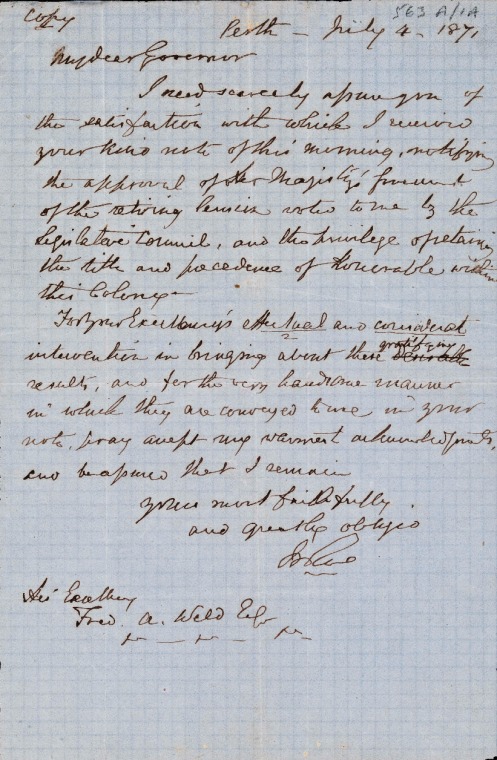 Copy
563 A/1A
Perth - July 4 - 1871
My dear Governor
I need scarcely assure you of
the satisfaction with which I received
your kind note of this morning, notifying
the approval of Her Majesty's Governmt
of the retiring Pension voted to me by the
Legislative Council, and the privilege of retaining
the title and precedence of Honourable within
this Colony -
For your Excellency's effectual and considerate
intervention in bringing about these gratifying
results, and for the very handsome manner
in which they are conveyed to me in your
note, pray accept my warmest acknowledgments,
and be assured that I remain
yours most faithfully
and greatly obliged
His Excellency
Fred. A. Weld Esqr